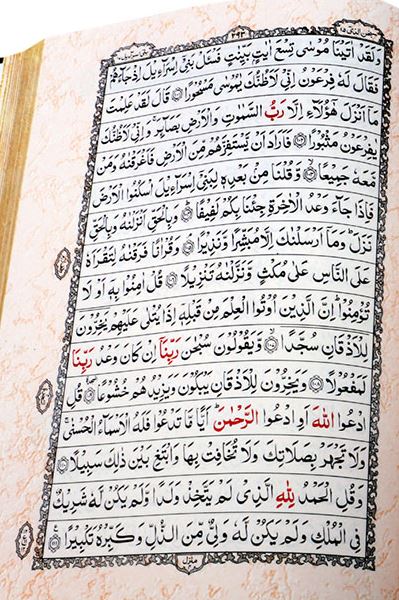 سبحن الذى ١٥
٢٩٣
بنى اسرآءيل ١٧
وَلَقَدْ اٰتَيْنَا مُوْسٰى تِسْعَ اٰيٰتٍۭ بَيِّنٰتٍ فَسْـَٔلْ بَنِىْٓ اِسْرَآءِيْلَ اِذْ جَآءَهُمْ
فَقَالَ لَهٗ فِرْعَوْنُ اِنِّىْ لَاَظُنُّكَ يٰمُوْسٰى مَسْحُوْرًا ۝١٠١ قَالَ لَقَدْ عَلِمْتَ
مَآ اَنْزَلَ هٰٓؤُلَآءِ اِلَّا رَبُّ السَّمٰوٰتِ وَالْاَرْضِ بَصَآئِرَ ۚ وَاِنِّىْ لَاَظُنُّكَ
يٰفِرْعَوْنُ مَثْبُوْرًا ۝١٠٢ فَاَرَادَ اَنْ يَّسْتَفِزَّهُمْ مِّنَ الْاَرْضِ فَاَغْرَقْنٰهُ وَمَنْ
مَّعَهٗ جَمِيْعًا ۝١٠٣ وَّقُلْنَا مِنْۢ بَعْدِهٖ لِبَنِىْٓ اِسْرَآءِيْلَ اسْكُنُوا الْاَرْضَ
فَاِذَا جَآءَ وَعْدُ الْاٰخِرَةِ جِئْنَا بِكُمْ لَفِيْفًا ۝١٠٤ وَبِالْحَقِّ اَنْزَلْنٰهُ وَبِالْحَقِّ
نَزَلَ ؕ وَمَآ اَرْسَلْنٰكَ اِلَّا مُبَشِّرًا وَّنَذِيْرًا ۝١٠٥ وَقُرْاٰنًا فَرَقْنٰهُ لِتَقْرَاَهٗ
عَلَى النَّاسِ عَلٰى مُكْثٍ وَّنَزَّلْنٰهُ تَنْزِيْلًا ۝١٠٦ قُلْ اٰمِنُوْا بِهٖٓ اَوْ لَا
تُؤْمِنُوْا ؕ اِنَّ الَّذِيْنَ اُوْتُوا الْعِلْمَ مِنْ قَبْلِهٖٓ اِذَا يُتْلٰى عَلَيْهِمْ يَخِرُّوْنَ
لِلْاَذْقَانِ سُجَّدًا ۝١٠٧ وَّيَقُوْلُوْنَ سُبْحٰنَ رَبِّنَآ اِنْ كَانَ وَعْدُ رَبِّنَا
لَمَفْعُوْلًا ۝١٠٨ وَيَخِرُّوْنَ لِلْاَذْقَانِ يَبْكُوْنَ وَيَزِيْدُهُمْ خُشُوْعًا ۝١٠٩ قُلِ
ادْعُوا اللّٰهَ اَوِ ادْعُوا الرَّحْمٰنَ ؕ اَيًّا مَّا تَدْعُوْا فَلَهُ الْاَسْمَآءُ الْحُسْنٰى ۚ
وَلَا تَجْهَرْ بِصَلَاتِكَ وَلَا تُخَافِتْ بِهَا وَابْتَغِ بَيْنَ ذٰلِكَ سَبِيْلًا ۝١١٠
وَقُلِ الْحَمْدُ لِلّٰهِ الَّذِىْ لَمْ يَتَّخِذْ وَلَدًا وَّلَمْ يَكُنْ لَّهٗ شَرِيْكٌ
فِى الْمُلْكِ وَلَمْ يَكُنْ لَّهٗ وَلِىٌّ مِّنَ الذُّلِّ وَكَبِّرْهُ تَكْبِيْرًا ۝١١١
منزل